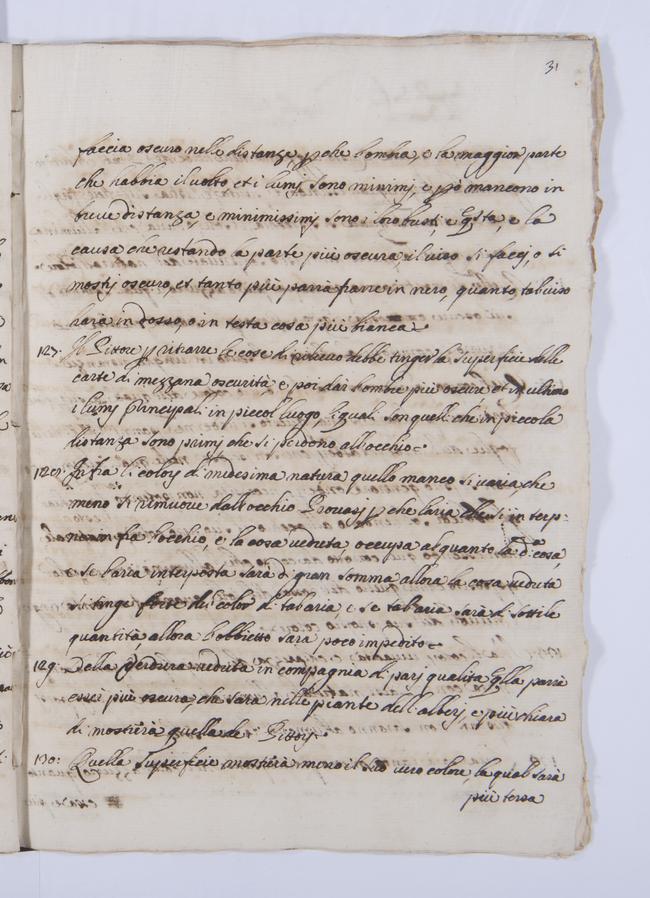 31
faccia oscuro nelle distanze, p che l'ombra, e la maggior parte
che habbia il volto et i lumj sono minimj, e pò mancono in
breve distanza, e minimissimj sono i loro lustri e Qsta, e la
causa che restando la parte più oscura, il viso si faccj, o si
mostrj oscuro, et tanto più parrà trarre in nero, quanto tal viso
harà in dosso, o in testa cosa più bianca.
127: Il Pittore p ritrarre le cose di rilievo debbe tinger la superficie delle
carte di mezzana oscurità e poi dar l'ombre più oscure et in ultimo
i lumj Principali in piccol luogo, li quali son quelli che in piccola
distanza sono primj che si perdono all'occhio.
128: Infra li colorj di medesima natura quello manco si varia, che
meno si rimuove dall'occhio Provasj p che l'aria che si interp:
fra l'occhio, e la cosa veduta, occupa alquanto la d.ª cosa,
e se l'aria interposta sarà di gran somma allora la cosa veduta
si tinge forte del color di tal aria, e se tal aria sarà di sottile
quantità allora l'obbietto sarà poco impedito.
129. Della Verdura veduta in compagnia di parj qualità Qlla parrà
esser più oscura, che sarà nelle piante dell'alberj, e più chiara
di mostrerà quella de Pratj.
130: Quella superficie mostrerà meno il suo vero colore, la qual sarà
più tersa